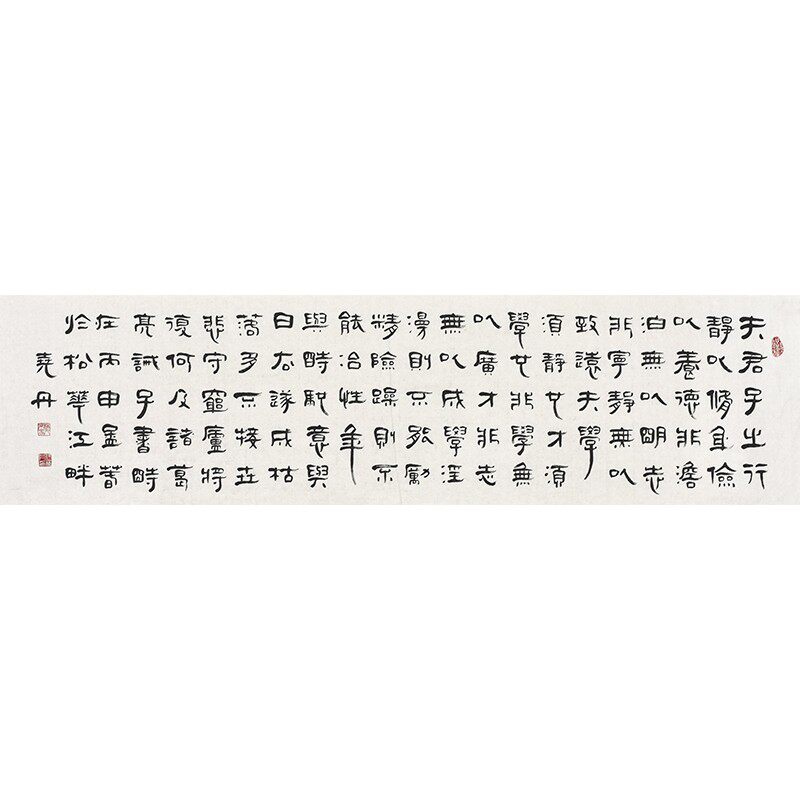 夫君子之行
靜以脩身儉
以養德非澹
泊無以明志
非寧靜無以
致遠夫學
須靜也才須
學也非學無
以廣才非志
無以成學淫
漫則不能勵
精險躁則不
能治性年
與時馳意與
日去遂成枯
落多不接世
悲守窮廬將
復何及諸葛
亮誡子書時
在丙申孟春
於松華江畔
堯丹